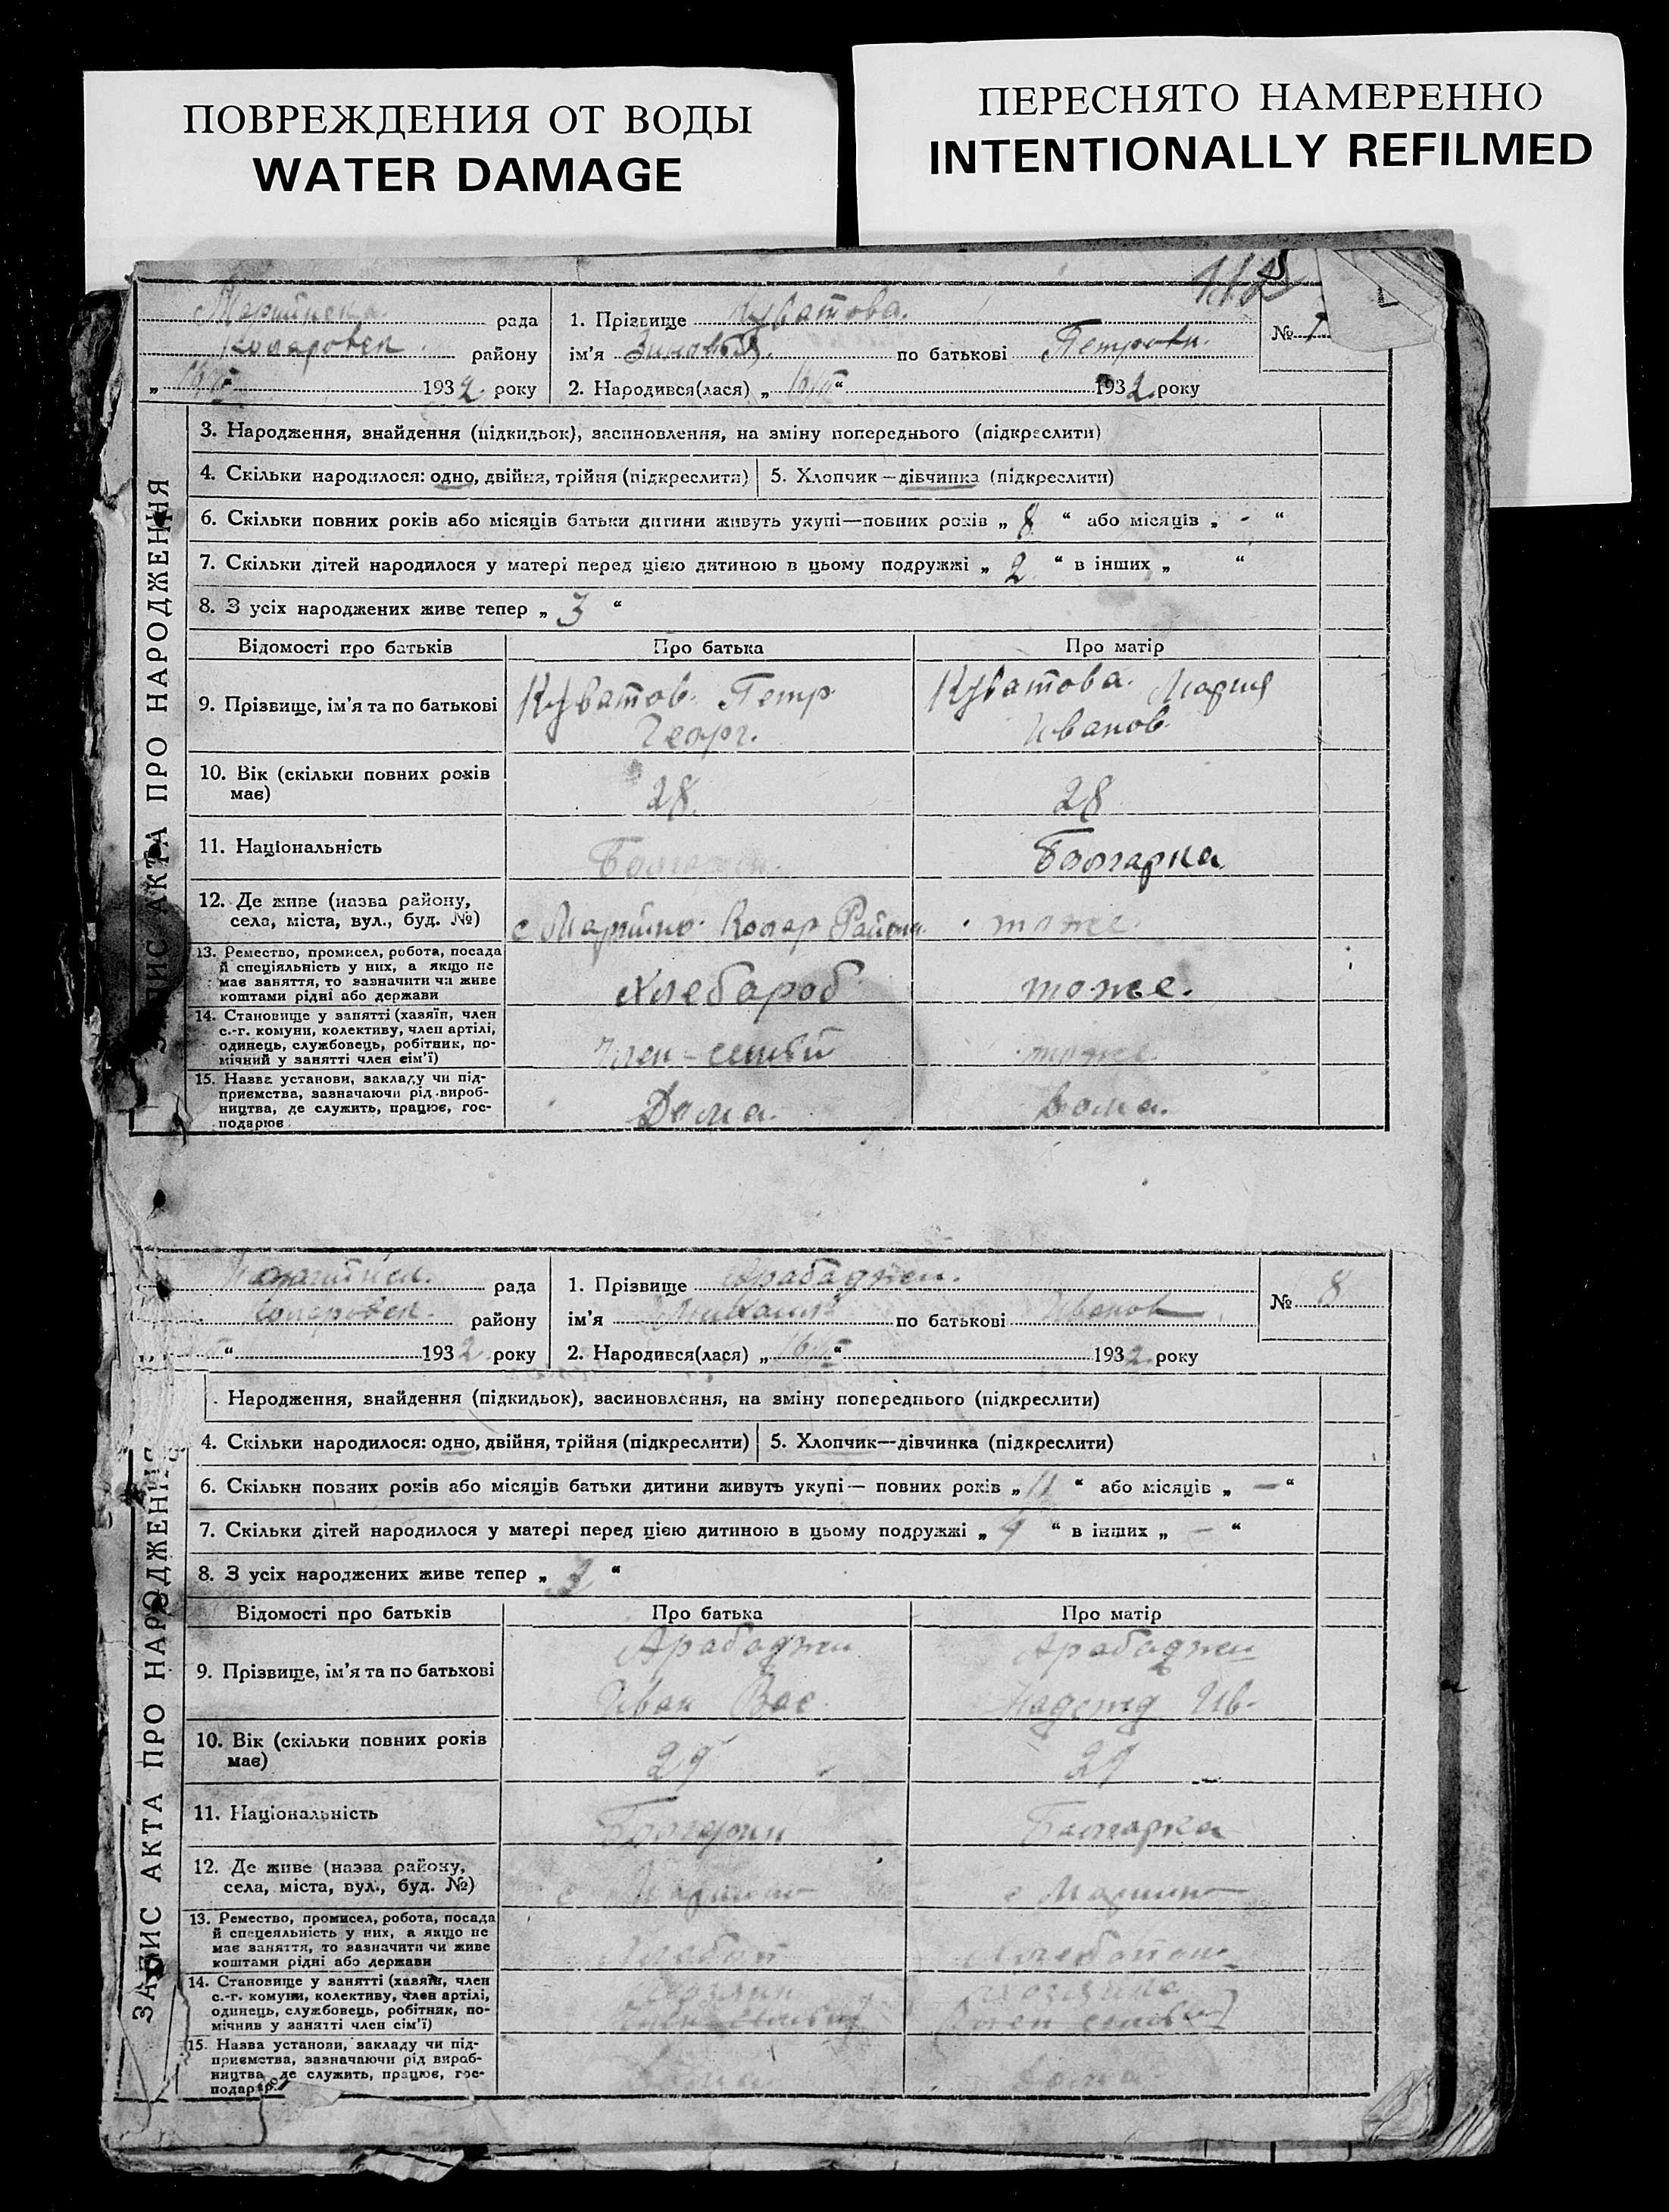 ПОВРЕЖДЕНИЯ ОТ ВОДЫ
WATER DAMAGE
ПЕРЕСНЯТО НАМЕРЕННО
INTENTIONALLY REFILMED
рада
району
1932 року
1. Прізвище Куватова.
ім'я по батькові Петровн.
2. Народився(лася) „ “ 1932 року
№ 7
ЗАПИС АКТА ПРО НАРОДЖЕННЯ
3. Народження, знайдення (підкидьок), засиновлення, на зміну попереднього (підкреслити)
4. Скільки народилося: одно, двійня, трійня (підкреслити) 5. Хлопчик—дівчинка (підкреслити)
6. Скільки повних років або місяців батьки дитини живуть укупі—повних років „ 8 “ або місяців „ - “
7. Скільки дітей народилося у матері перед цією дитиною в цьому подружжі „ 2 “ в інших „ “
8. З усіх народжених живе тепер „ 3 “
Відомості про батьків Про батька Про матір
9. Прізвище, ім'я та по батькові
Куватов Петр
Георг.
Куватова. Мария
Иванов.
10. Вік (скільки повних років
має)
28. 28
11. Національність Болгарин. Болгарка
12. Де живе (назва району,
села, міста, вул., буд. №)
тоже.
13. Ремество, промисел, робота, посада
й спеціяльність у них, а якщо не
має заняття, то зазначити чи живе
коштами рідні або держави
Хлебороб тоже.
14. Становище у занятті (хазяїн, член
с.-г. комуни, колективу, член артілі,
одинець, службовець, робітник, по-
мічний у занятті член сім'ї)
Член-семьи тоже
15. Назва установи, закладу чи під-
приємства, зазначаючи рід вироб-
ництва, де служить, працює, гос-
подарює
Дома. Дома.
рада
району
“ 1932 року
1. Прізвище Арабаджи.
ім'я по батькові Иванов
2. Народився(лася) „ “ 1932 року
№ 8
ЗАПИС АКТА ПРО НАРОДЖЕННЯ
Народження, знайдення (підкидьок), засиновлення, на зміну попереднього (підкреслити)
4. Скільки народилося: одно, двійня, трійня (підкреслити) 5. Хлопчик—дівчинка (підкреслити)
6. Скільки повних років або місяців батьки дитини живуть укупі— повних років „ 11 “ або місяців „ — “
7. Скільки дітей народилося у матері перед цією дитиною в цьому подружжі „ 4 “ в інших „ — “
8. З усіх народжених живе тепер „ 3 “
Відомості про батьків Про батька Про матір
9. Прізвище, ім'я та по батькові
Арабаджи
Иван Вас.
Арабаджи
Ив-
10. Вік (скільки повних років
має)
29
11. Національність Болгарин Болгарка
12. Де живе (назва району,
села, міста, вул., буд. №)
13. Ремество, промисел, робота, посада
й спецеяльність у них, а якщо не
має заняття, то зазначити чи живе
коштами рідні або держави
14. Становище у занятті (хазяїн, член
с.-г. комуни, колективу, член артілі,
одинець, службовець, робітник, по-
мічнив у занятті член сім'ї)
15. Назва установи, закладу чи під-
приємства, зазначаючи рід вироб-
ництва, де служить, працює, гос-
подарює
Дома